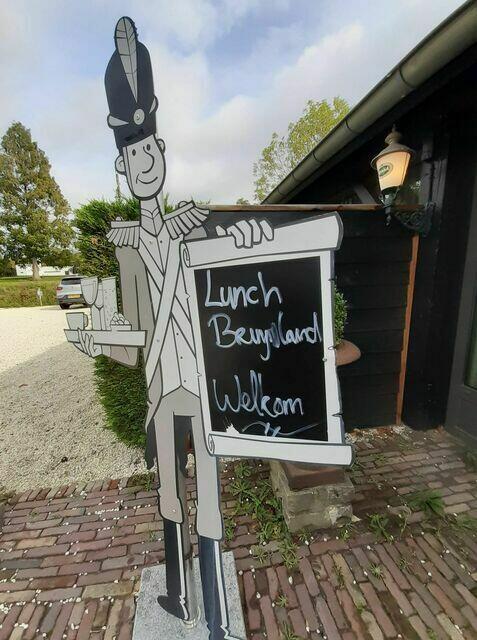 Lunch
Bruynland
Welkom